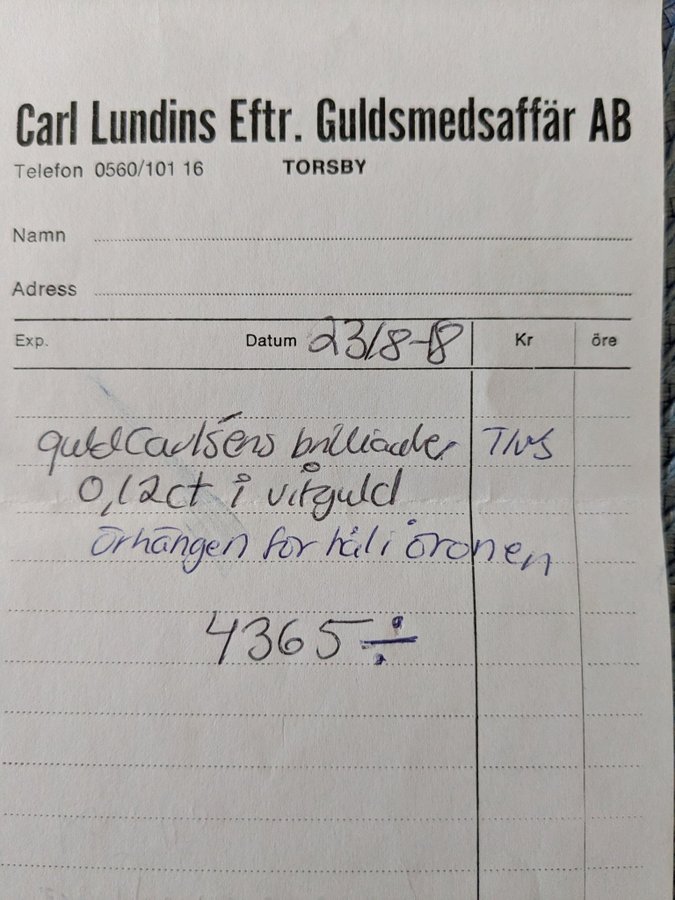 Carl Lundins Eftr. Guldsmedsaffär AB
Telefon 0560/101 16 TORSBY
Namn
Adress
Exp. Datum 23/8-18 Kr öre
guldCarlséns brilliader
0,12ct i vitguld
örhängen för hål i öronen
4365 ÷